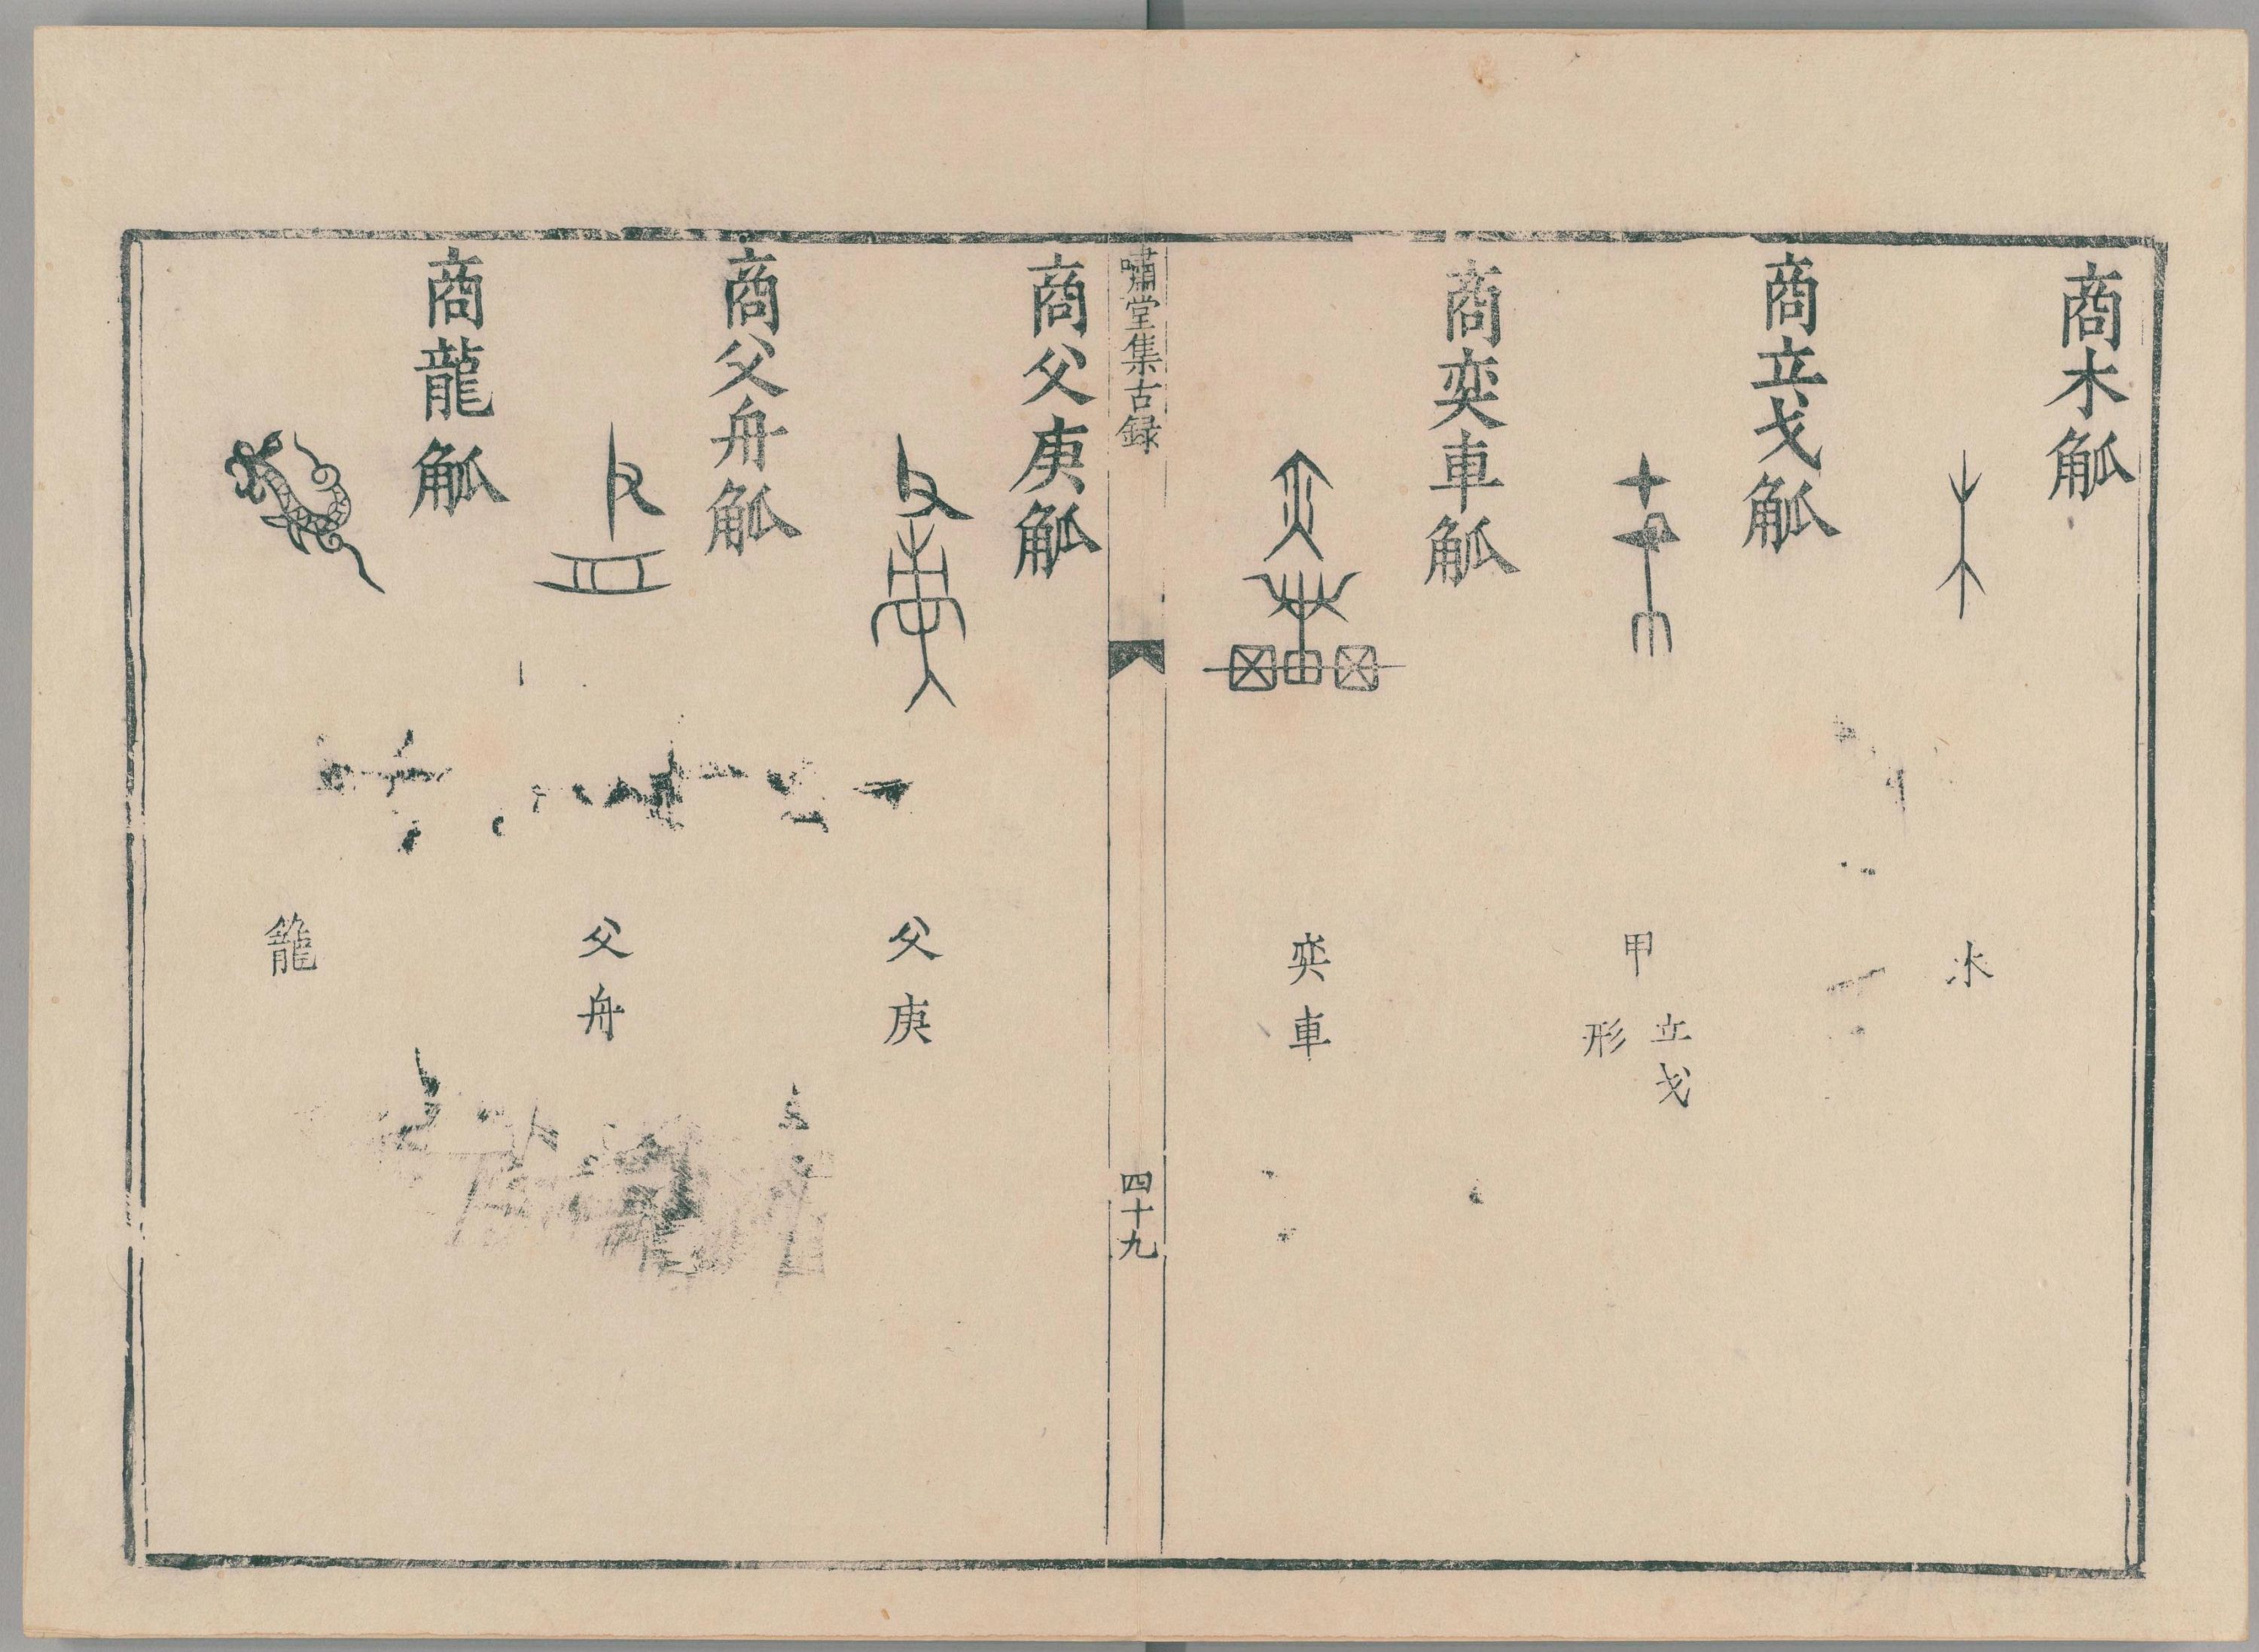 商木觚
木
商立戈觚
甲
立戈
形
商奕車觚
奕車
嘯堂集古録
四十九
商父庚觚
父庚
商父舟觚
父舟
商龍觚
龍